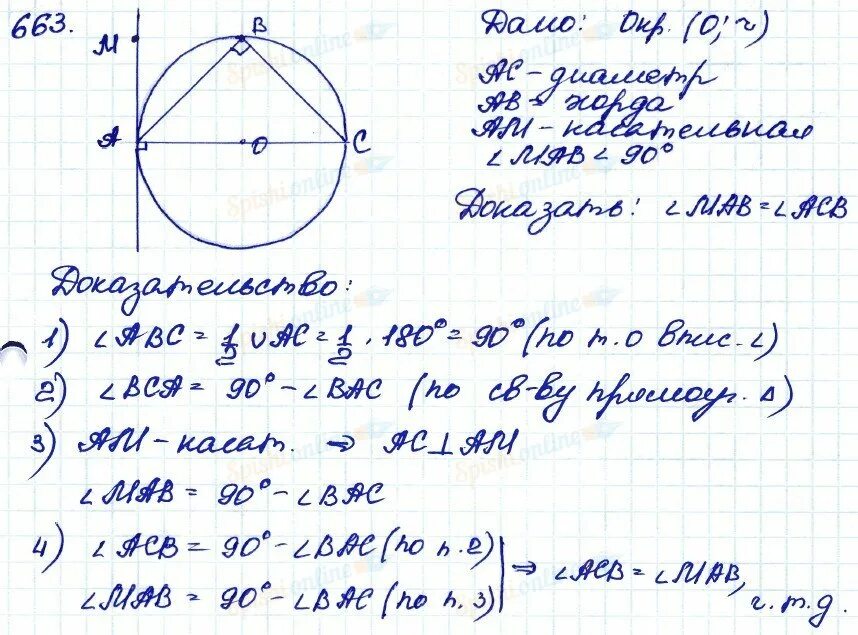 663.
M
B
A
O
C
Дано: Окр. (O; r)
AC - диаметр
AB - хорда
AM - касательная
∠MAB < 90°
Доказать: ∠MAB = ∠ACB
Доказательство:
1) ∠ABC = 1/2 ∪AC = 1/2 · 180° = 90° (по т. о впис. ∠)
2) ∠BCA = 90° - ∠BAC (по св-ву прямоуг. Δ)
3) AM - касат. ⇒ AC ⊥ AM
∠MAB = 90° - ∠BAC
4) ∠ACB = 90° - ∠BAC (по п. 2)
∠MAB = 90° - ∠BAC (по п. 3) ⇒ ∠ACB = ∠MAB,
ч. т. д.
Spishi online